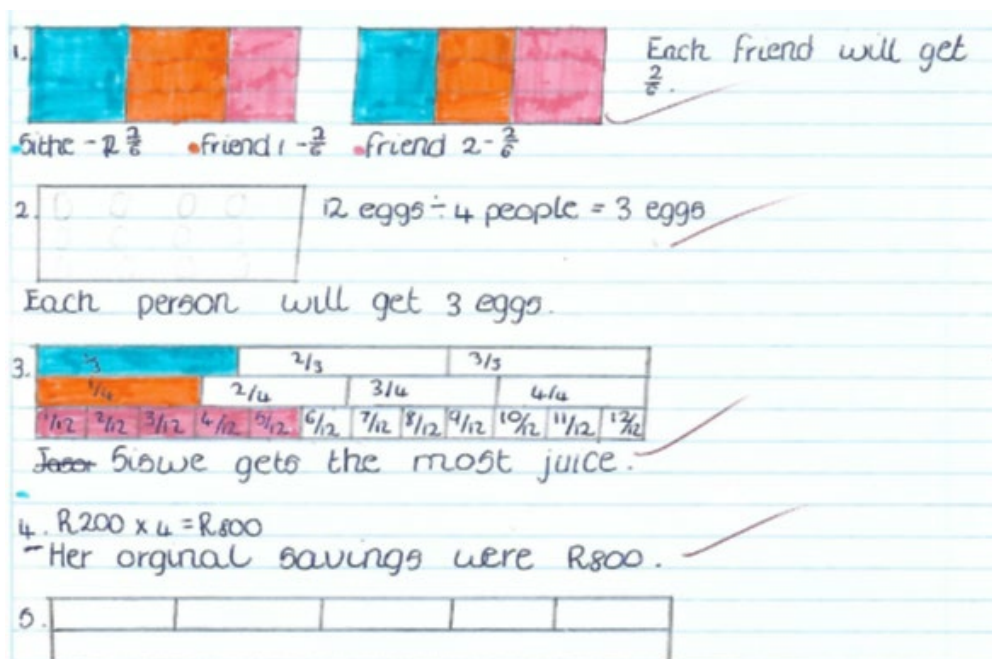 1. Each friend will get
2/6.
Sithe - 2/6 friend 1 - 2/6 friend 2 - 2/6
2. 12 eggs ÷ 4 people = 3 eggs
Each person will get 3 eggs.
3. 1/3 2/3 3/3
1/4 2/4 3/4 4/4
1/12 2/12 3/12 4/12 5/12 6/12 7/12 8/12 9/12 10/12 11/12 12/12
Siswe gets the most juice.
4. R200 x 4 = R800
- Her orginal savings were R800.
5.